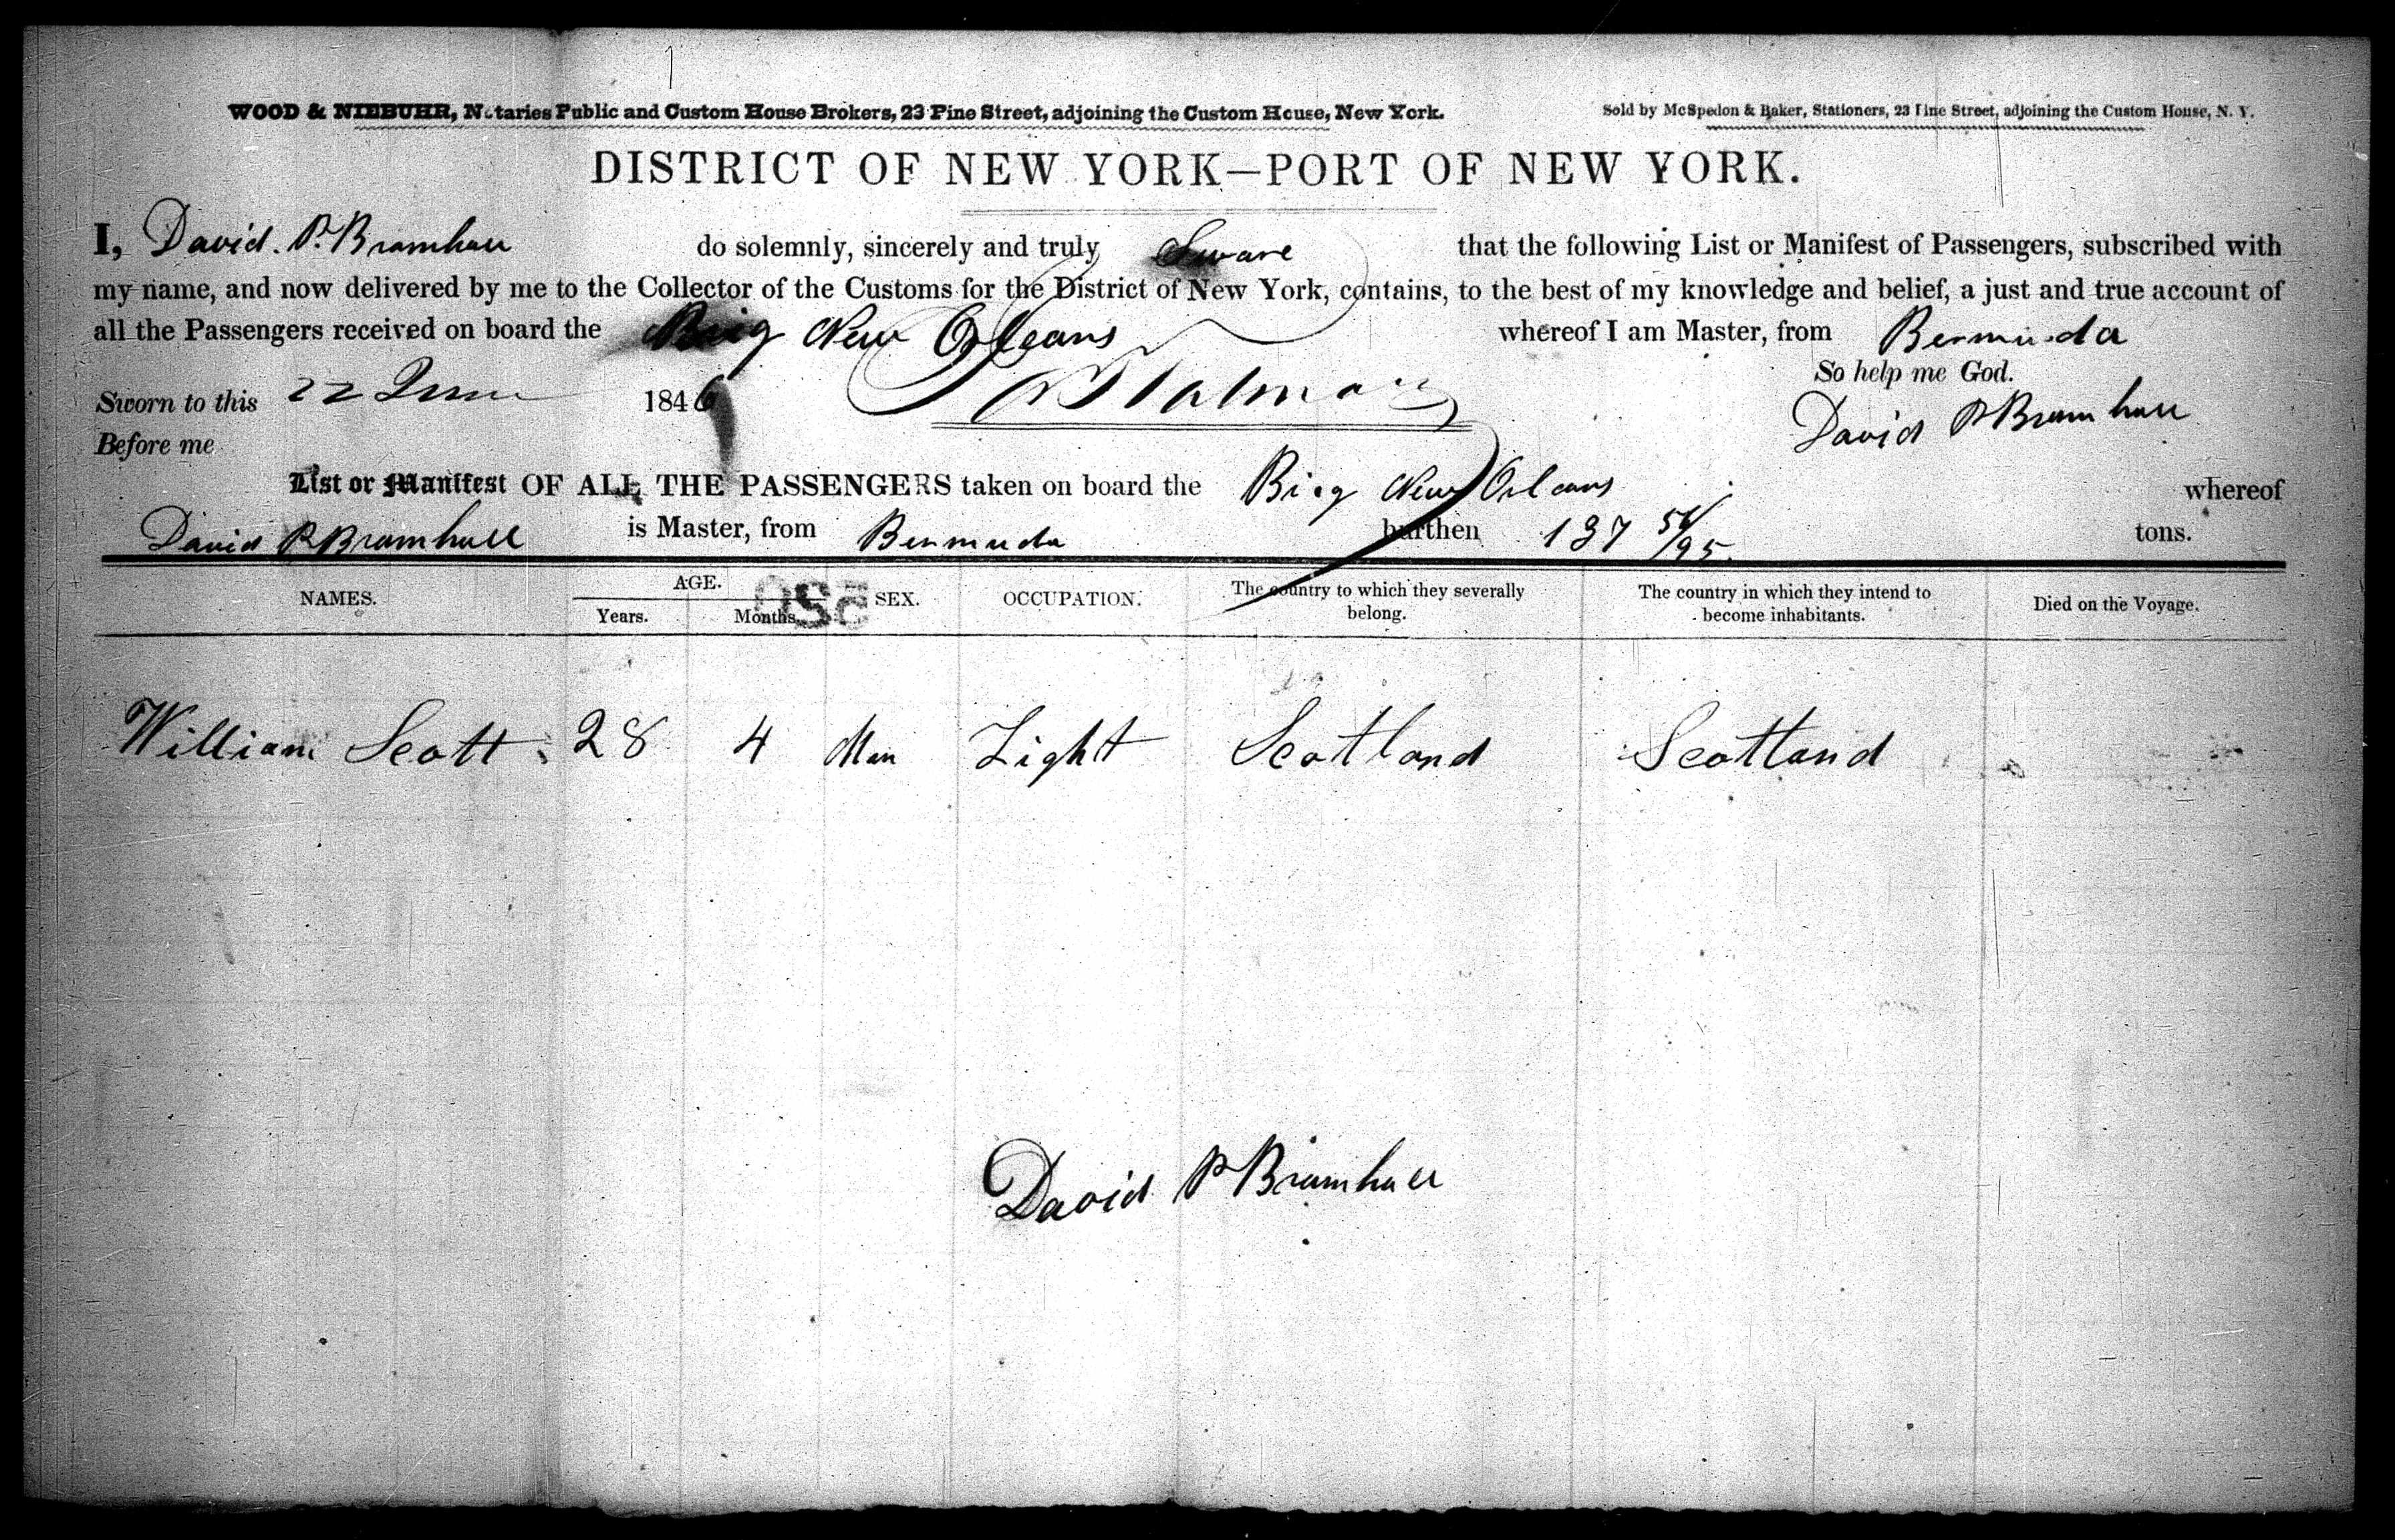 WOOD & NIEBUHR, Notaries Public and Custom House Brokers, 23 Pine Street, adjoining the Custom House, New York. Sold by McSpedon & Baker, Stationers, 23 Pine Street, adjoining the Custom House, N. Y.
DISTRICT OF NEW YORK—PORT OF NEW YORK.
I, David. P. Bramhall do solemnly, sincerely and truly Sware that the following List or Manifest of Passengers, subscribed with
my name, and now delivered by me to the Collector of the Customs for the District of New York, contains, to the best of my knowledge and belief, a just and true account of
all the Passengers received on board the Brig New Orleans whereof I am Master, from Bermuda
So help me God.
Sworn to this 22 June 1846
David P Bramhall
Before me
List or Manifest OF ALL THE PASSENGERS taken on board the Brig New Orleans whereof
David P Bramhall is Master, from Bermuda burthen 137 tons.
NAMES. AGE. Years. Months. SEX. OCCUPATION. The country to which they severally belong. The country in which they intend to become inhabitants. Died on the Voyage.
William Scott 28 4 Man Light Scotland Scotland
David P Bramhall